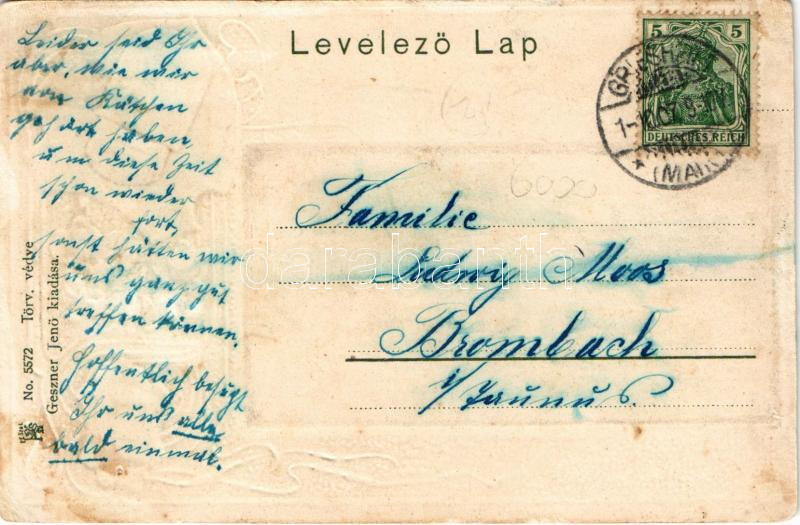 Levelező Lap
Leider seid Ihr
aber, wie wir
von Käthen
gehört haben,
um diese Zeit
schon wieder
fort,
sonst hätten wir
uns ganz gut
treffen können.
Hoffentlich besugt
Ihr uns alle
bald einmal.
Familie
Ludwig Moos
Brombach
i/Taunus.
No. 5572 Törv. védve
Geszner Jenő kiadása.
5 5
DEUTSCHES REICH
GRIESHEIM
(MAIN)
6000
darabanth